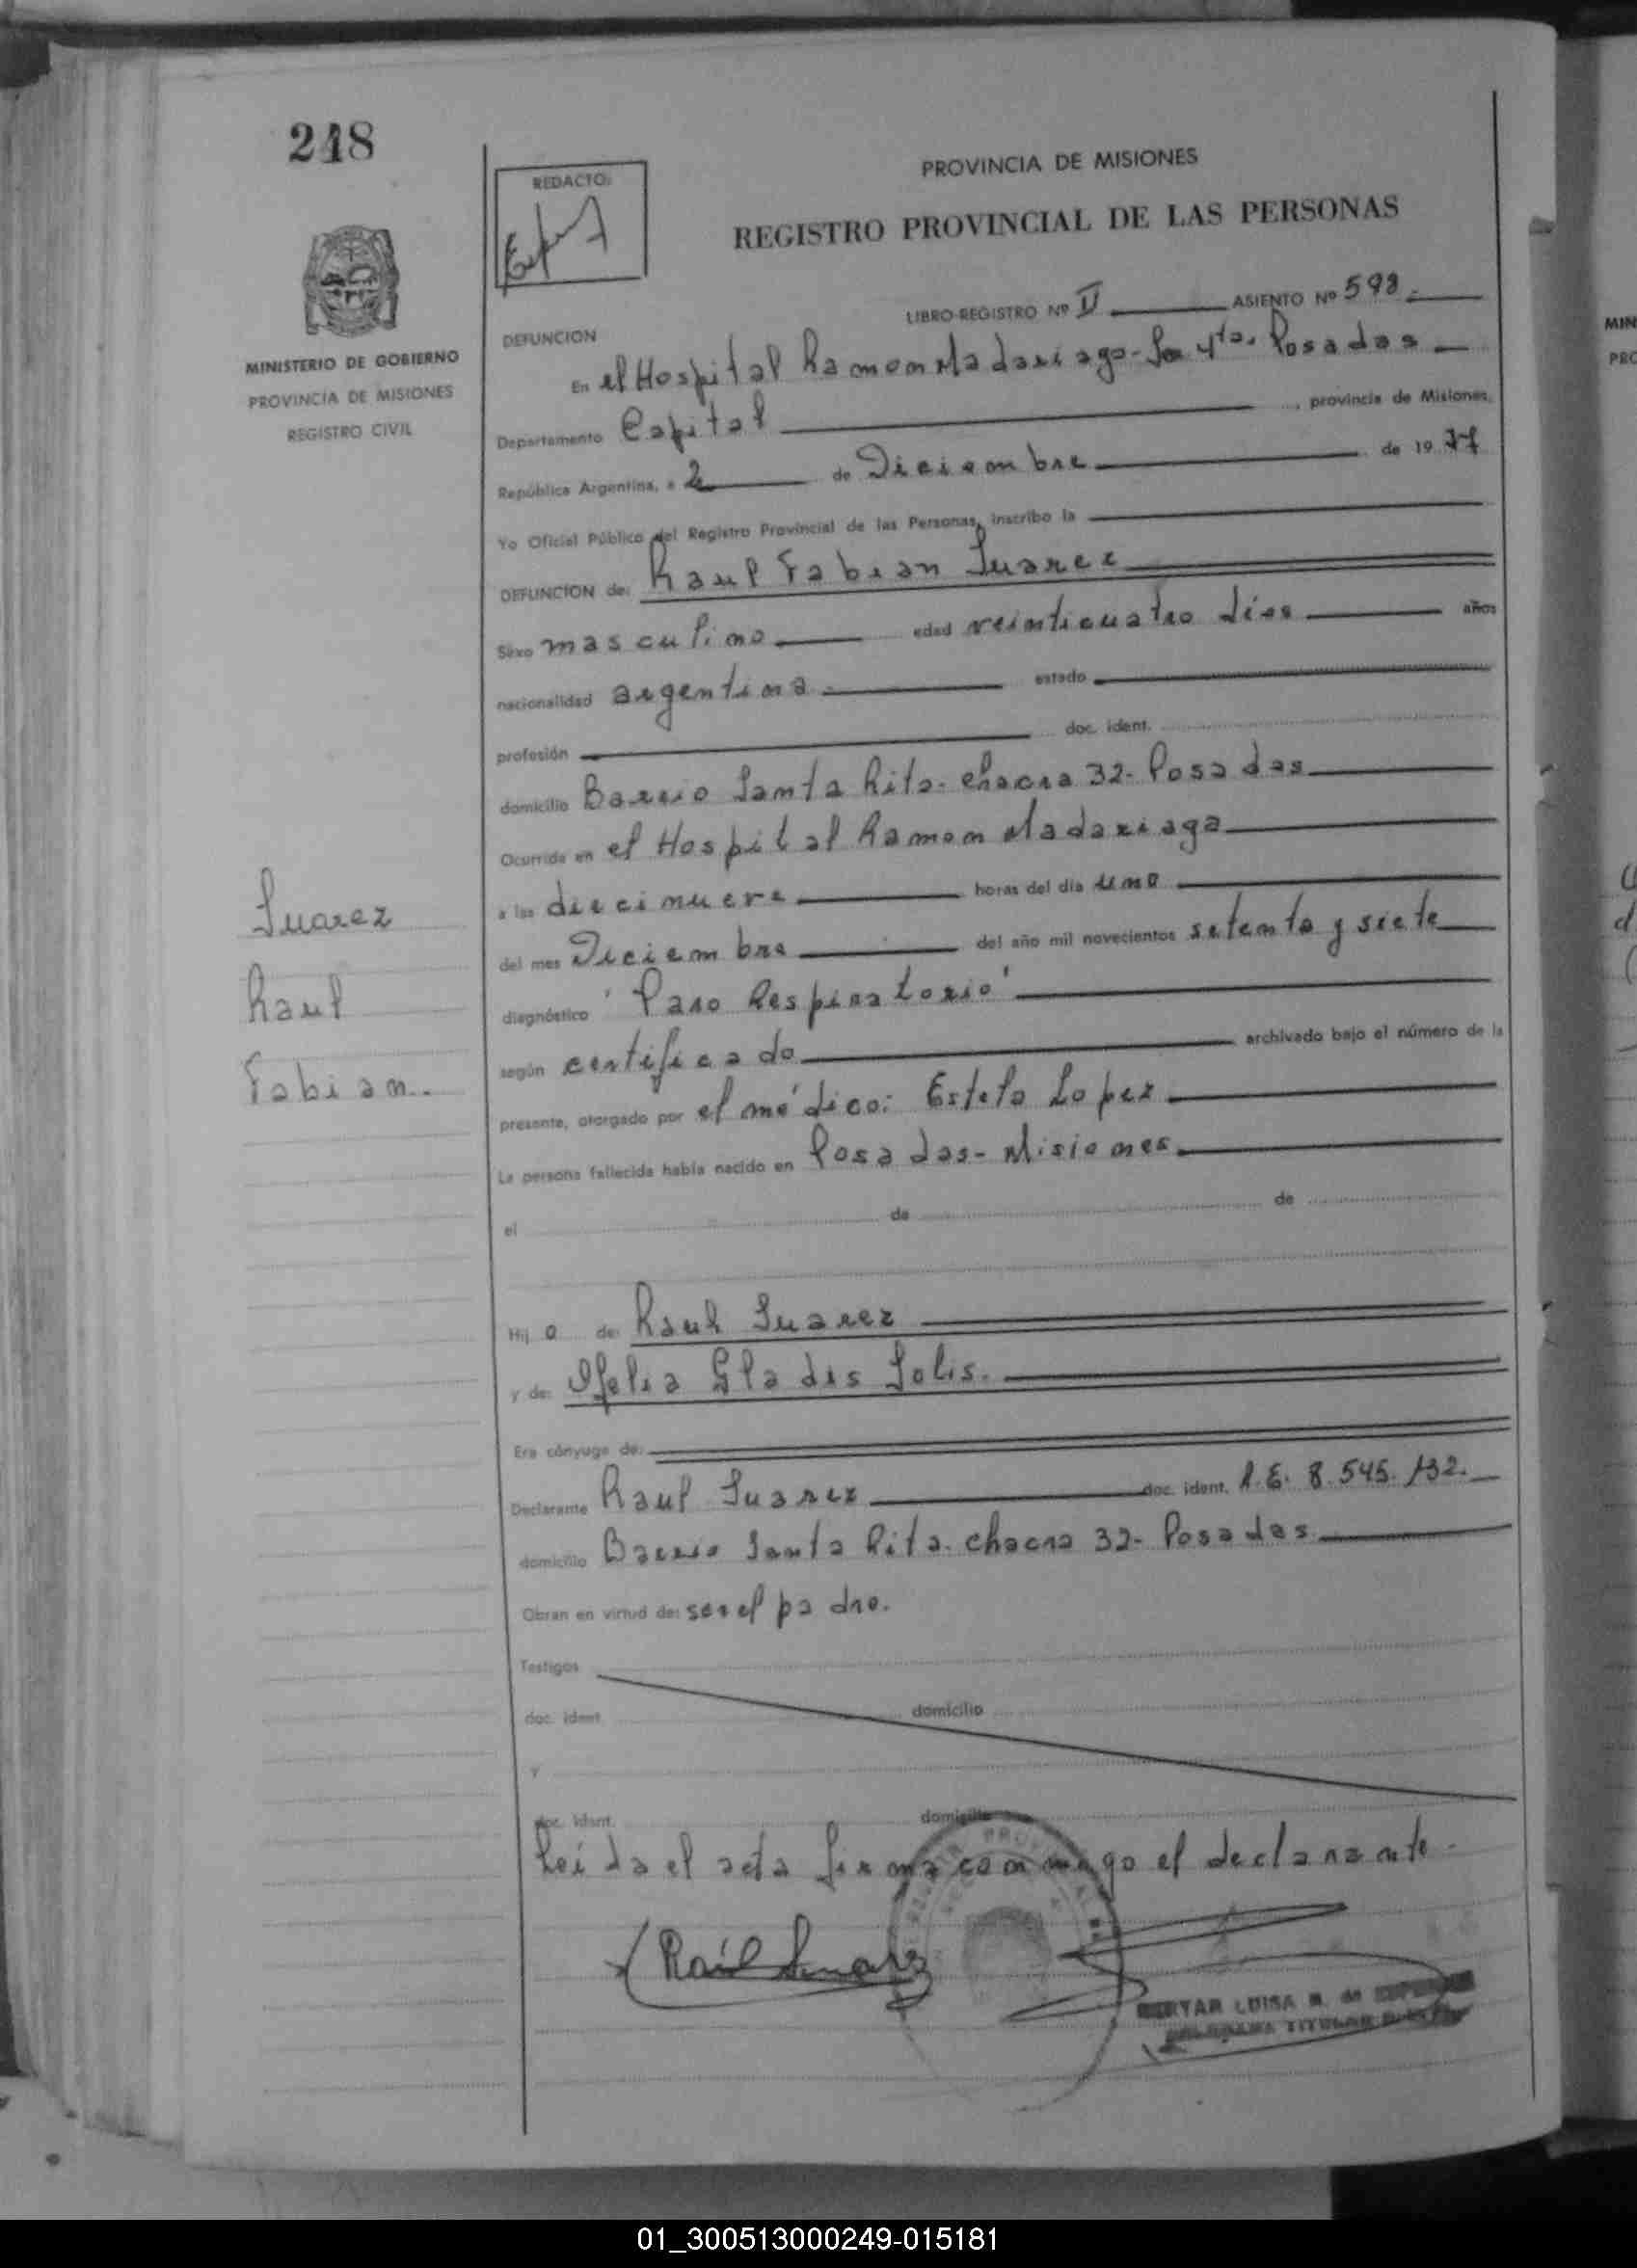 248
REDACTO:
PROVINCIA DE MISIONES
REGISTRO PROVINCIAL DE LAS PERSONAS
MINISTERIO DE GOBIERNO
PROVINCIA DE MISIONES
REGISTRO CIVIL
LIBRO-REGISTRO Nº II ASIENTO Nº 598.-
DEFUNCION
En el Hospital Ramon Madariaga- 4ta. Posadas
Departamento Capital , provincia de Misiones,
República Argentina, a 2 de Diciembre de 1977
Yo Oficial Público del Registro Provincial de las Personas, inscribo la
DEFUNCION de: Raul Fabian Suarez
Sexo masculino edad veinticuatro días años
nacionalidad argentina estado
profesión doc. ident.
domicilio Barrio Santa Rita- chacra 32- Posadas
Ocurrida en el Hospital Ramon Madariaga
a las diecinueve horas del día uno
del mes Diciembre del año mil novecientos setenta y siete
diagnóstico "Paro Respiratorio"
según certificado archivado bajo el número de la
presente, otorgado por el médico: Estela Lopez
La persona fallecida había nacido en Posadas- Misiones
el de de
Hij o de: Raul Suarez
y de: Ofelia Gladis Solis.
Era cónyuge de:
Declarante Raul Suarez doc. ident. L.E. 8.545.132.
domicilio Barrio Santa Rita- chacra 32- Posadas
Obran en virtud de: ser el padre.
Testigos
doc. ident. domicilio
y
doc. ident. domicilio
Leída el acta firma conmigo el declarante-
Raúl Suarez
LUISA
TITULAR
Suarez
Raul
Fabian.
01_300513000249-015181